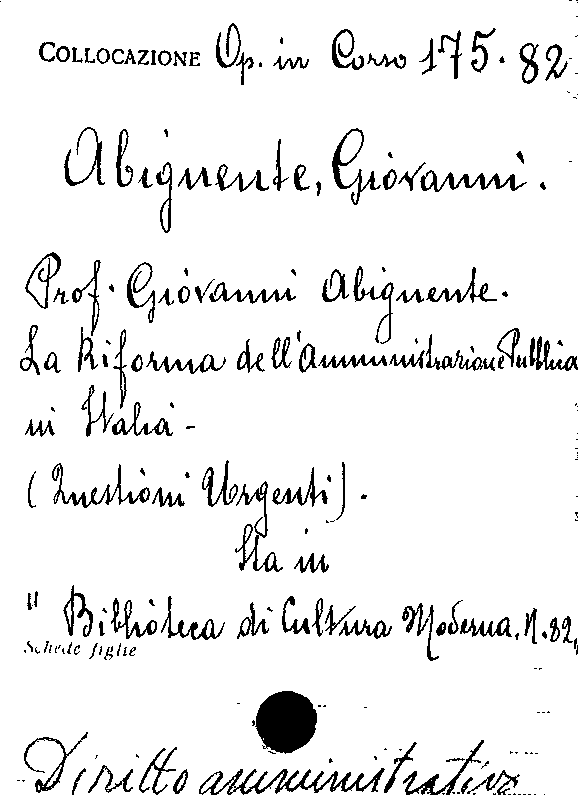 COLLOCAZIONE Op. in Corso 175. 82
Abignente, Giovanni.
Prof. Giovanni Abignente.
La Riforma dell'Amministrazione Pubblica
in Italia -
(Questioni Urgenti).
Sta in
" Biblioteca di Cultura Moderna. N. 82,
Schede figlie
Diritto amministrativo